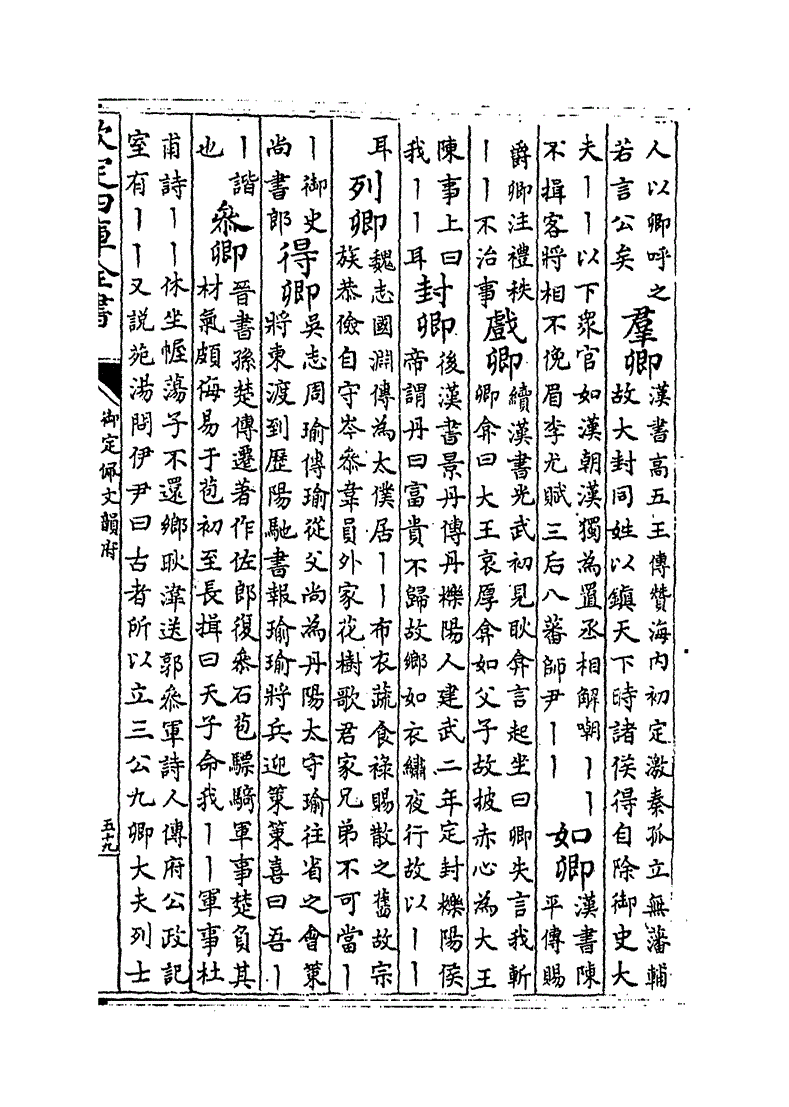 人以卿呼之
若言公矣
羣卿
漢書高五王傳贊海内初定激秦孤立無藩輔
故大封同姓以鎮天下時諸侯得自除御史大
夫丨丨以下衆官如漢朝漢獨為置丞相解嘲丨丨
不揖客將相不俛眉李尤賦三后八蕃師尹丨丨
如卿
漢書陳
平傳賜
爵卿注禮秩
丨丨不治事
戲卿
續漢書光武初見耿弇言起坐曰卿失言我斬
卿弇曰大王哀厚弇如父子故披赤心為大王
陳事上曰
我丨丨耳
封卿
後漢書景丹傳丹櫟陽人建武二年定封櫟陽侯
帝謂丹曰富貴不歸故鄉如衣繡夜行故以丨丨
耳
列卿
魏志國淵傳為太僕居丨丨布衣蔬食祿賜散之舊故宗
族恭儉自守岑參韋員外家花樹歌君家兄弟不可當丨
丨御史
尚書郎
得卿
吳志周瑜傳瑜從父尚為丹陽太守瑜往省之會策
將東渡到歷陽馳書報瑜瑜將兵迎策策喜曰吾丨
丨諧
也
參卿
晉書孫楚傳遷著作佐郎復參石苞驃騎軍事楚負其
材氣頗侮易于苞初至長揖曰天子命我丨丨軍事杜
甫詩丨丨休坐幄蕩子不還鄉耿湋送郭參軍詩人傳府公政記
室有丨丨又說苑湯問伊尹曰古者所以立三公九卿大夫列士
欽定四庫全書
御定佩文韻府
五十九